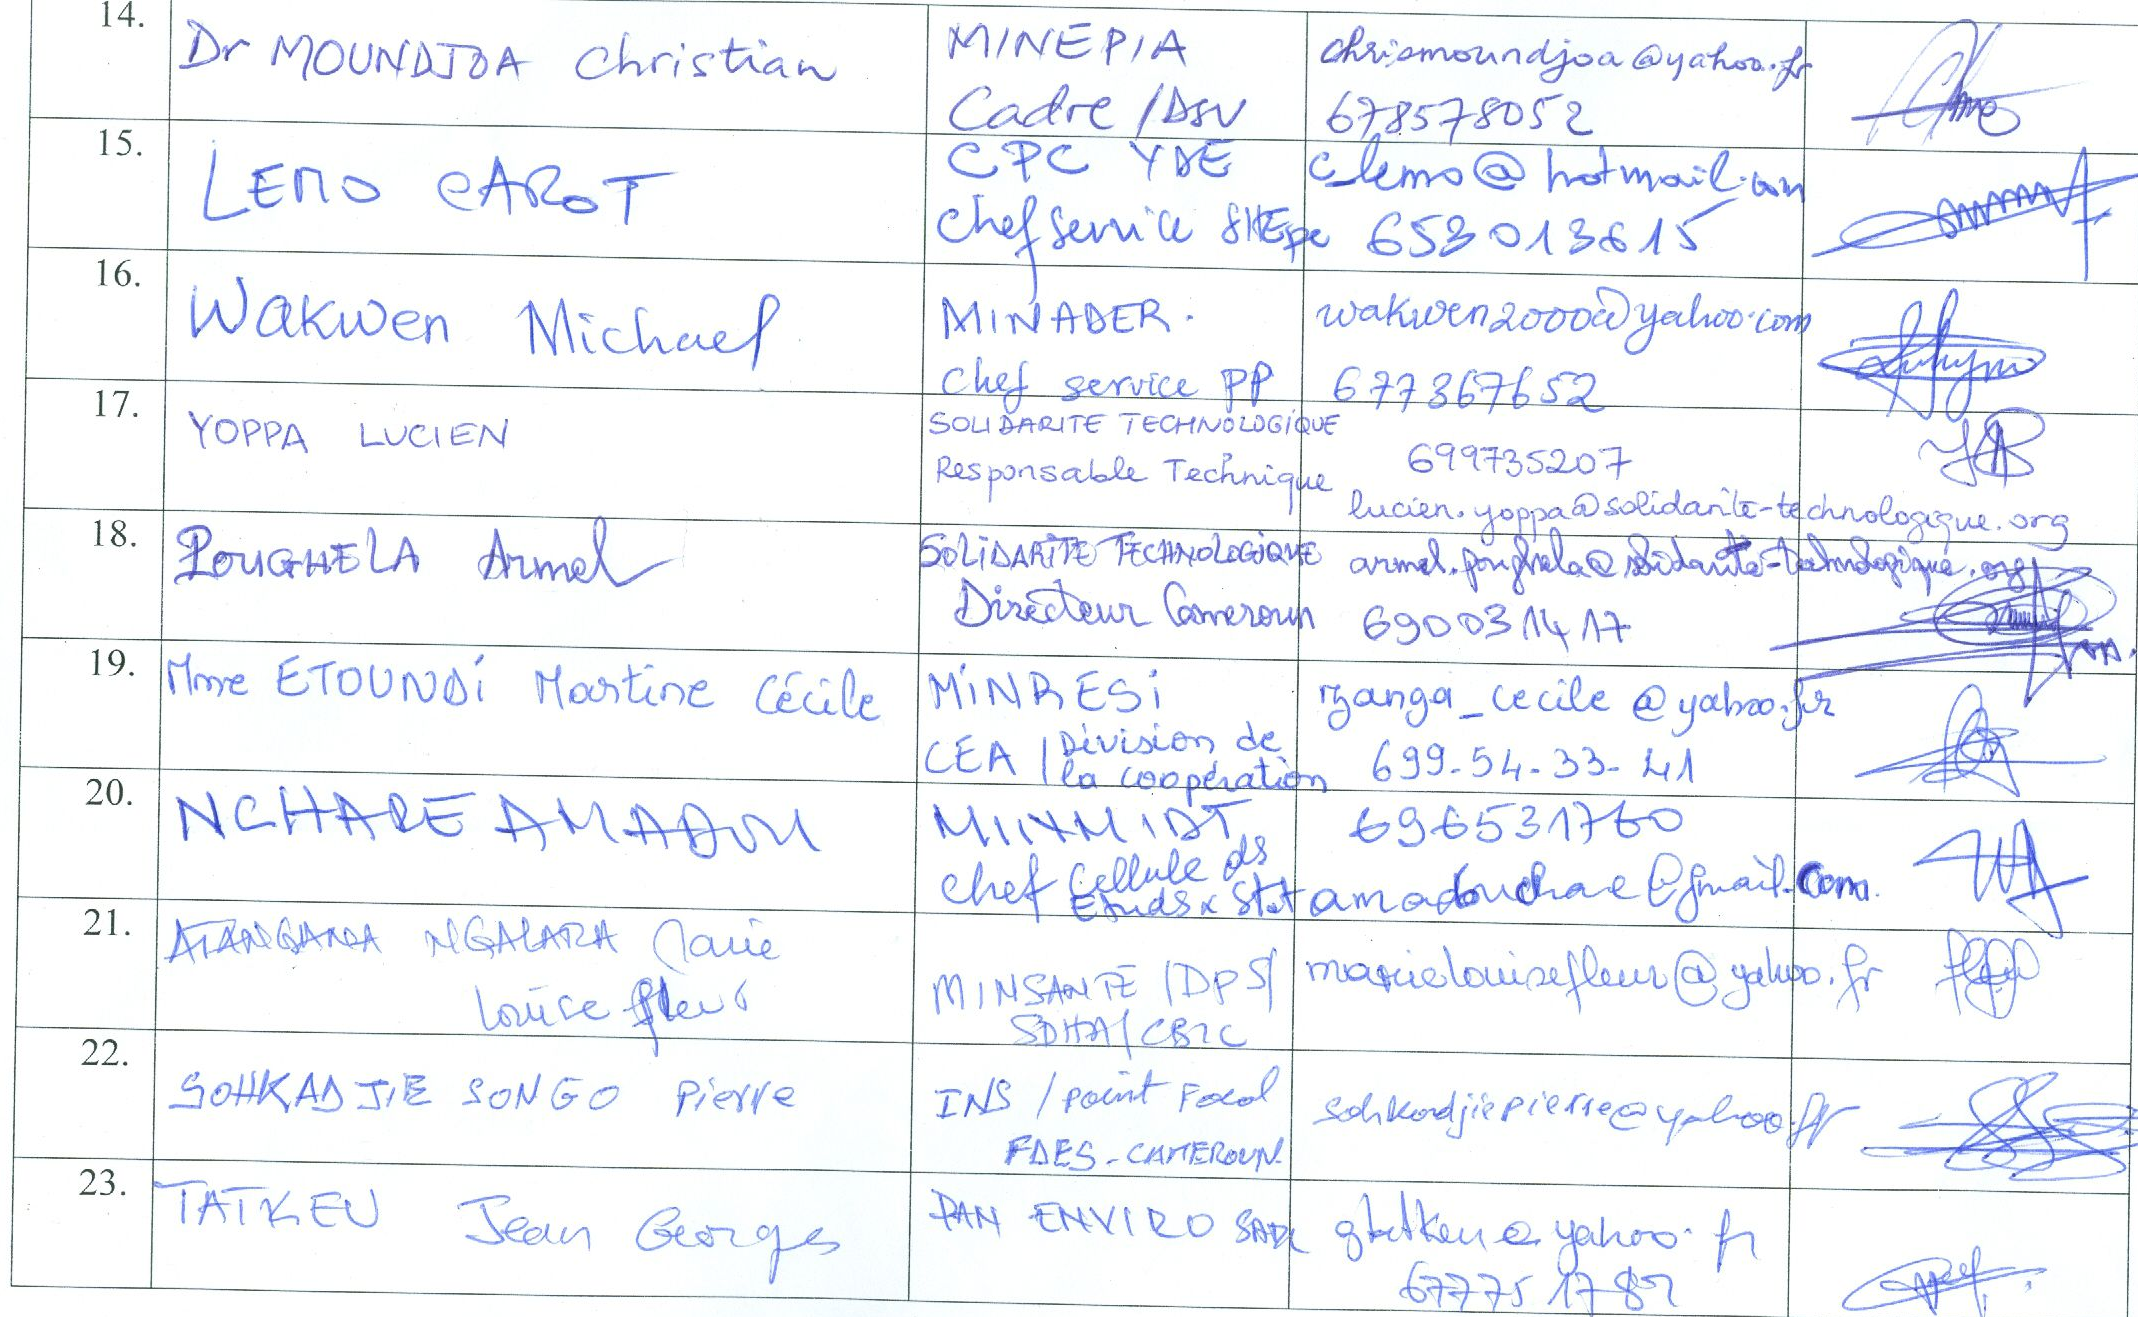 14.
Dr MOUNDJOA Christian
MINEPIA
Cadre /DSV
chrismoundjoa@yahoo.fr
678578052
15.
LEMO CAROT
CPC YDE
Chef Service SHEpe
c_lemo@hotmail.com
653013615
16.
Wakwen Michael
MINADER.
Chef service PP
wakwen2000@yahoo.com
677367652
17.
YOPPA LUCIEN
SOLIDARITE TECHNOLOGIQUE
Responsable Technique
699735207
lucien.yoppa@solidarite-technologique.org
18.
POUGHELA Armel
SOLIDARITE TECHNOLOGIQUE
Directeur Cameroun
armel.poughela@solidarite-technologique.org
690031417
19.
Mme ETOUNDI Martine Cécile
MINRESI
CEA / Division de
la coopération
nzanga_cecile @yahoo.fr
699-54-33-41
20.
NCHARE AMADOU
MINMIDT
Chef Cellule ds
Etuds x Stat
696531760
21.
ATANGANA NGALARA Marie
Louise fleur
MINSANTE /DPS/
marielouisefleur@yahoo.fr
22.
SOHKADJIE SONGO Pierre
INS / Point Focal
FDES-CAMEROUN.
sohkadjiepierre@yahoo.fr
23.
TATKEU Jean Georges
PAN ENVIRO SARL
gtatkeu@yahoo.fr